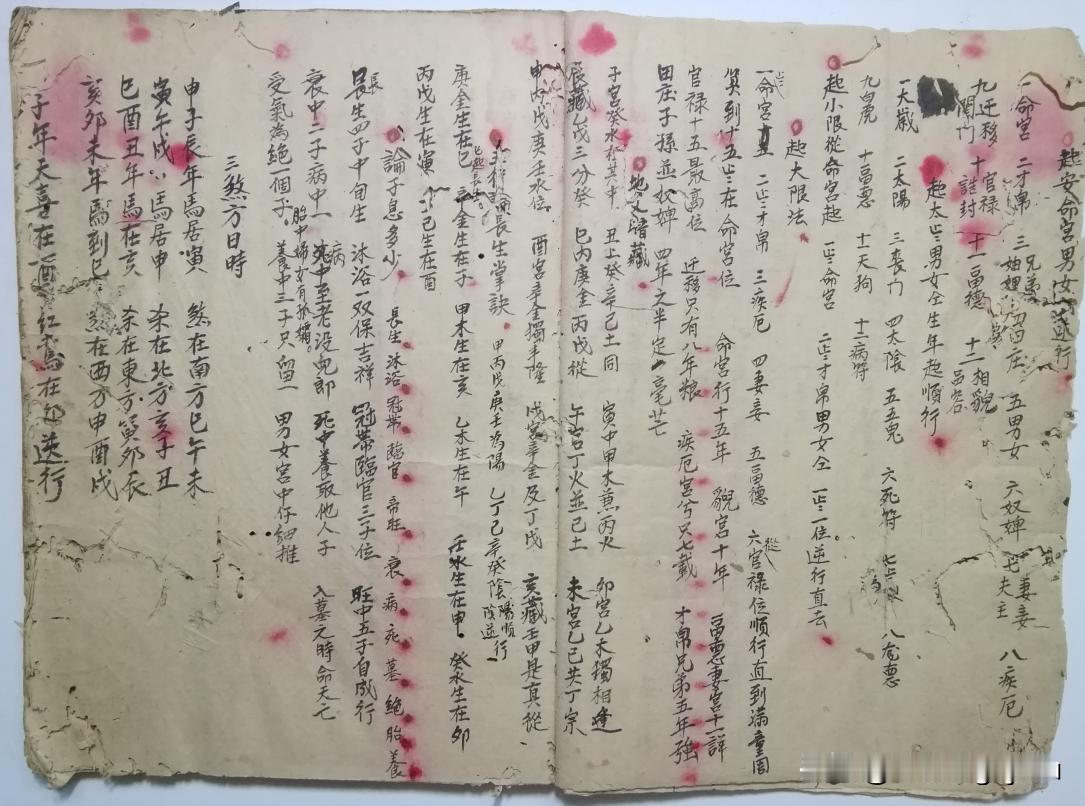 起安命宮男女逆行
一命宮 二才帛 三兄弟 四田庄 五男女 六奴婢 七妻妾 八疾厄
妯娌 七夫主
九迁移 十官禄 十一畐德 十二相貌
閨門 十誥封
起太歲男女仝生年起順行
一大歲 二太陽 三丧門 四太陰 五五鬼 六死符 八龙惪
九白虎 十畐惪 十一天狗 十二病符
起小限從命宮起 一歲命宮 二歲才帛男女仝 一歲一位逆行直去
起大限法
一歲命宮 二歲才帛 三疾厄 四妻妾 五畐德 六從官禄位順行直到滿童囯
筭到十五歲在命宮位 命宮行十五年 貌宮十年 畐惪妻宮十一詳
官禄十五最高位 迁移只有八年粮 疾厄宮兮只七載 才帛兄弟五年強
田庄子孫並奴婢 四年之半定一毫芒
地支暗藏
子宮癸水在其中 丑上癸辛己土同 寅中甲木兼丙火 卯宮乙木獨相逢
辰藏乙戊三分癸 巳丙庚金丙戊從 午宮丁火並己土 未宮乙己共丁宗
申丙戊庚壬水位 酉宮辛金獨丰隆 戌宮辛金及丁戊 亥藏壬甲是真從
長生掌訣 甲丙戊庚壬為陽 乙丁己辛癸陰 陽順行 陰逆行
庚金生在巳 辛金生在子 甲木生在亥 乙木生在午 壬水生在申 癸水生在卯
丙戊生在寅 丁己生在酉
論子息多少 長生沐浴 冠帶 臨官 帝旺 衰 病 死 墓 絕 胎 養
長生四子中旬生 沐浴一双保吉祥 冠帶臨官三子位 旺中五子自成行
衰中二子病中一 死中至老没兒郎 死中養取他人子 入墓之時命夭亡
受氣為絕一個子 胎中婦女有孤孀 養中三子只留一 男女宮中仔細推
三煞方日時
申子辰年馬居寅 煞在南方巳午未
寅午戌馬居申 杀在北方亥子丑
巳酉丑年馬在亥 杀在東方寅卯辰
亥卯未年馬到巳 煞在西方申酉戌
子年天喜在酉 紅鸞在卯逆行